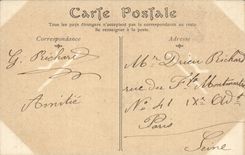 Carte Postale
Tous les pays étrangers n'acceptent pas la correspondance au recto
Se renseigner à la poste
Correspondance
Adresse
G. Richard
Amitié
Mr Drieu Richard
rue du Fg Montmartre
No 41 IXe
Paris
Seine